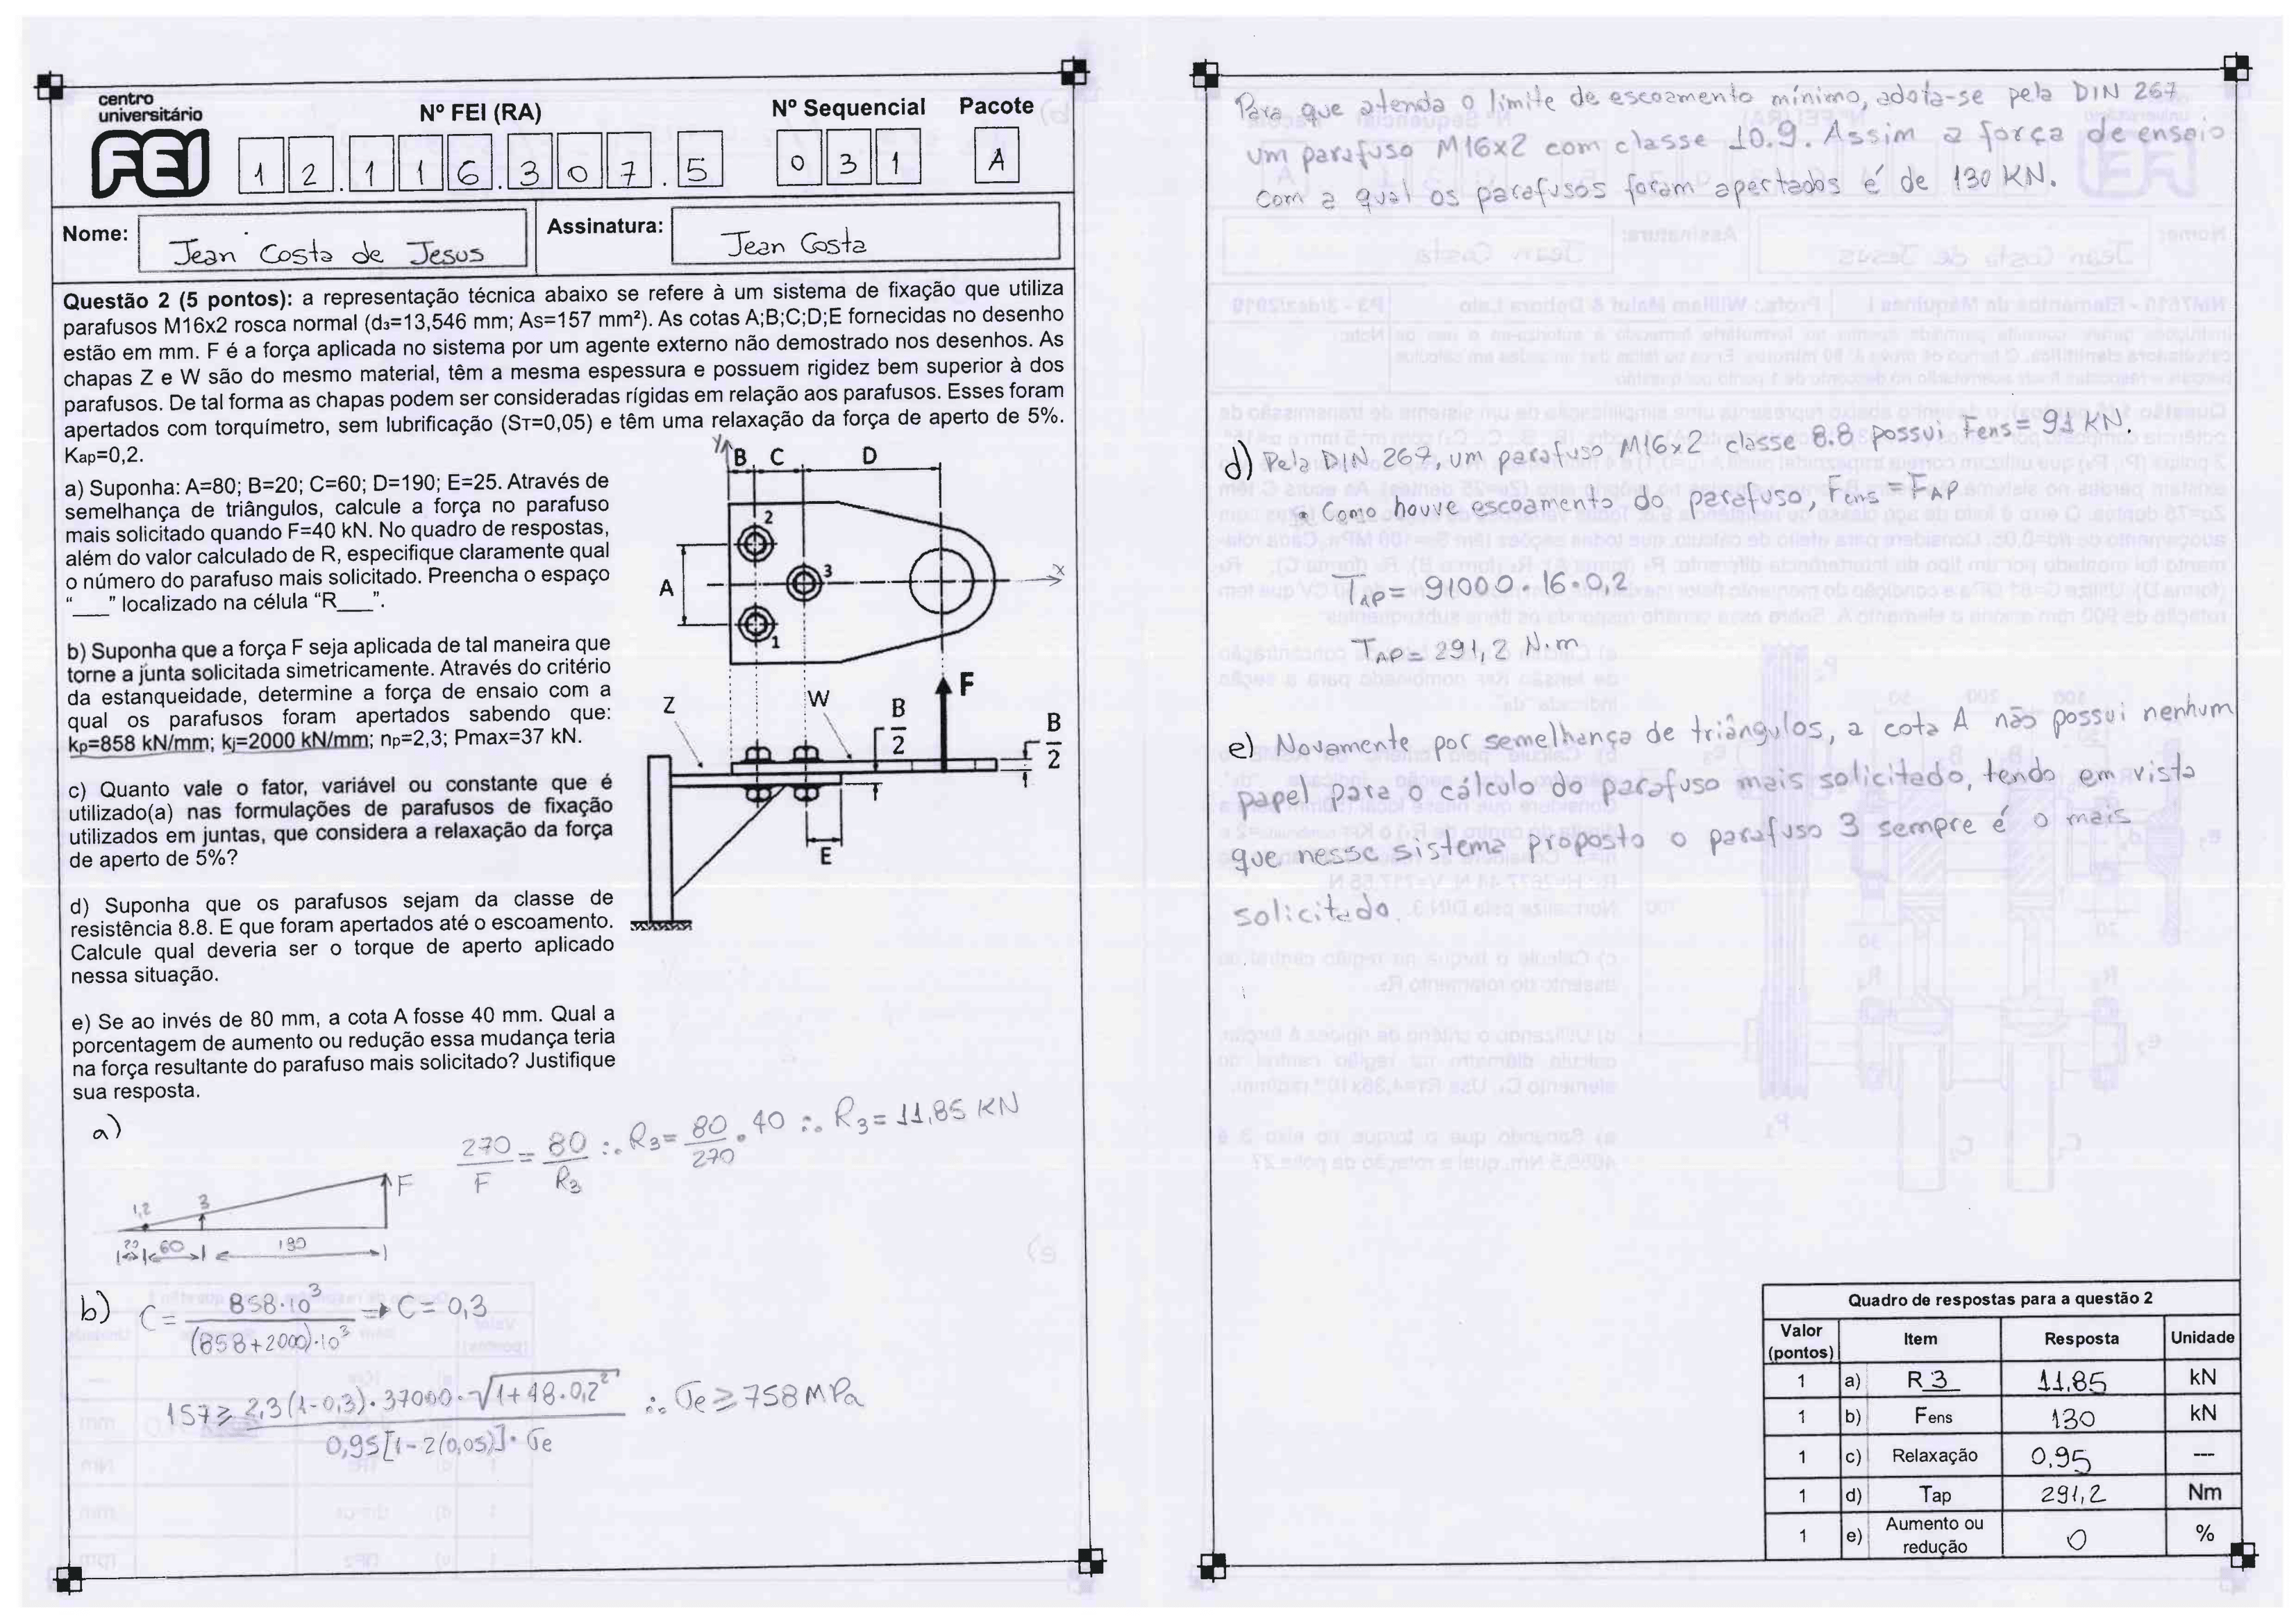 centro
universitário
FEI
Nº FEI (RA)
12.116.307.5
Nº Sequencial
031
Pacote
A
Nome:
Jean Costa de Jesus
Assinatura:
Jean Costa
Questão 2 (5 pontos): a representação técnica abaixo se refere à um sistema de fixação que utiliza
parafusos M16x2 rosca normal (d₃=13,546 mm; As=157 mm²). As cotas A;B;C;D;E fornecidas no desenho
estão em mm. F é a força aplicada no sistema por um agente externo não demostrado nos desenhos. As
chapas Z e W são do mesmo material, têm a mesma espessura e possuem rigidez bem superior à dos
parafusos. De tal forma as chapas podem ser consideradas rígidas em relação aos parafusos. Esses foram
apertados com torquímetro, sem lubrificação (Sᴛ=0,05) e têm uma relaxação da força de aperto de 5%.
Kap=0,2.
a) Suponha: A=80; B=20; C=60; D=190; E=25. Através de
semelhança de triângulos, calcule a força no parafuso
mais solicitado quando F=40 kN. No quadro de respostas,
além do valor calculado de R, especifique claramente qual
o número do parafuso mais solicitado. Preencha o espaço
"___" localizado na célula "R___".
b) Suponha que a força F seja aplicada de tal maneira que
torne a junta solicitada simetricamente. Através do critério
da estanqueidade, determine a força de ensaio com a
qual os parafusos foram apertados sabendo que:
kp=858 kN/mm; kj=2000 kN/mm; np=2,3; Pmax=37 kN.
c) Quanto vale o fator, variável ou constante que é
utilizado(a) nas formulações de parafusos de fixação
utilizados em juntas, que considera a relaxação da força
de aperto de 5%?
d) Suponha que os parafusos sejam da classe de
resistência 8.8. E que foram apertados até o escoamento.
Calcule qual deveria ser o torque de aperto aplicado
nessa situação.
e) Se ao invés de 80 mm, a cota A fosse 40 mm. Qual a
porcentagem de aumento ou redução essa mudança teria
na força resultante do parafuso mais solicitado? Justifique
sua resposta.
y
B C D
2
3
x
A
1
F
Z
W
B/2
B/2
E
a)
270/F = 80/R3 ∴ R3 = 80/270 . 40 ∴ R3 = 11,85 KN
1,2
3
F
20 60 190
b) C = 858·10³/(858+2000)·10³ → C = 0,3
157 ≥ 2,3(1-0,3)·37000·√1+48·0,2² / 0,95[1-2(0,05)]·σe ∴ σe ≥ 758 MPa
Para que atenda o limite de escoamento mínimo, adota-se pela DIN 267
um parafuso M16x2 com classe 10.9. Assim a força de ensaio
com a qual os parafusos foram apertados é de 130 KN.
d) Pela DIN 267, um parafuso M16x2 classe 8.8 possui Fens = 91 KN.
* Como houve escoamento do parafuso, Fens = FAP
TAP = 91000 · 16 · 0,2
TAP = 291,2 N.m
e) Novamente por semelhança de triângulos, a cota A não possui nenhum
papel para o cálculo do parafuso mais solicitado, tendo em vista
que nesse sistema proposto o parafuso 3 sempre é o mais
solicitado.
Quadro de respostas para a questão 2
Valor (pontos) Item Resposta Unidade
1 a) R 3 11,85 kN
1 b) Fens 130 kN
1 c) Relaxação 0,95 ---
1 d) Tap 291,2 Nm
1 e) Aumento ou redução 0 %